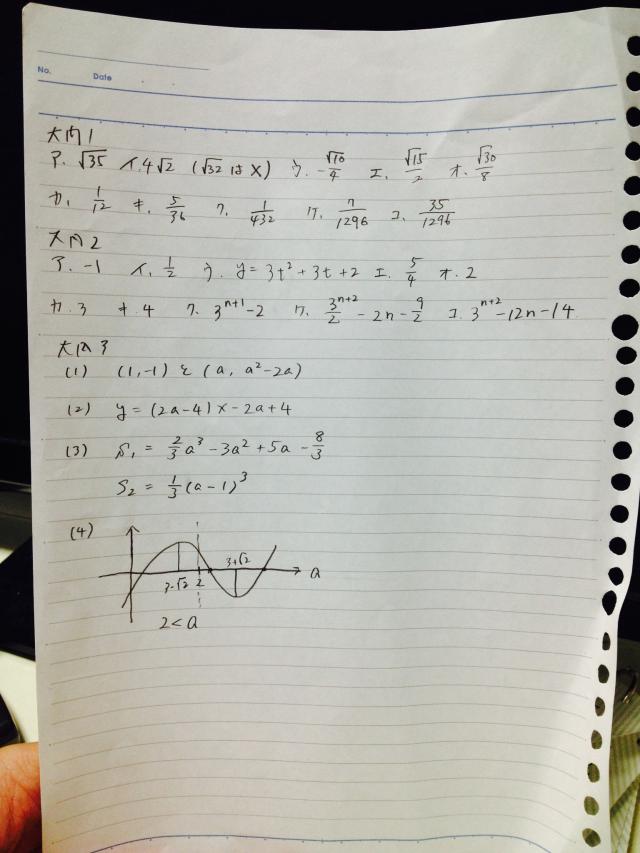 No.
Date
大問1
ア. √35 イ. 4√2 (√32 は×) ウ. -√10/4 エ. √15/2 オ. √30/8
カ. 1/12 キ. 5/36 ク. 1/432 ケ. 7/1296 コ. 35/1296
大問2
ア. -1 イ. 1/2 ウ. y=3t²+3t+2 エ. 5/4 オ. 2
カ. 3 キ. 4 ク. 3^{n+1}-2 ケ. 3^{n+2}/2 -2n- 9/2 コ. 3^{n+2}-12n-14
大問3
(1) (1,-1) と (a, a²-2a)
(2) y=(2a-4)x-2a+4
(3) S₁ = 2/3 a³-3a²+5a- 8/3
S₂ = 1/3 (a-1)³
(4)
3+√2
3-√2 2 a
2<a